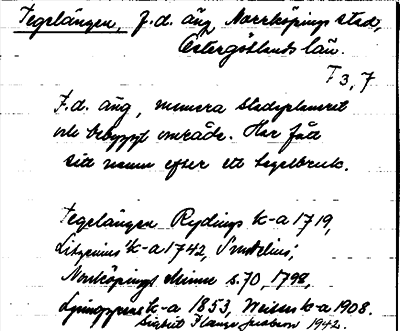 Tegelängen, f.d. äng, Norrköpings stad,
Östergötlands län.
T 3, 7
F.d. äng, numera stadsplanerat
och bebyggt område. Har fått
sitt namn efter ett tegelbruk.
Tegelängen Rydings k-a 1719,
k-a 1742,
Norrköpings Minne s. 70, 1798,
Ljunggrens k-a 1853, k-a 1908.
1942.